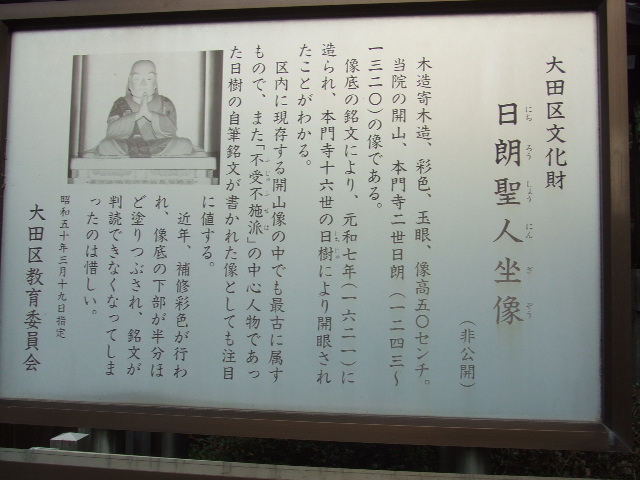 大田区文化財
日朗聖人坐像
にち ろう しょう にん ざ ぞう
（非公開）
木造寄木造、彩色、玉眼、像高五〇センチ。
当院の開山、本門寺二世日朗（一二四三～
一三二〇）の像である。
像底の銘文により、元和七年（一六二一）に
造られ、本門寺十六世の日樹により開眼され
たことがわかる。
区内に現存する開山像の中でも最古に属す
もので、また「不受不施派」の中心人物であっ
た日樹の自筆銘文が書かれた像としても注目
に値する。
近年、補修彩色が行わ
れ、像底の下部が半分ほ
ど塗りつぶされ、銘文が
判読できなくなってしま
ったのは惜しい。
昭和五十年三月十九日指定
大田区教育委員会